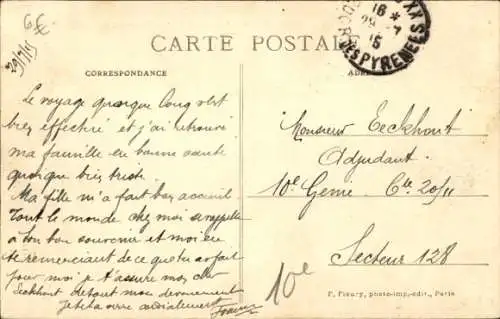 CARTE POSTALE
CORRESPONDANCE
29/7/15
16 *
29-7
15
PYRENEES
Le voyage quoique long s'est
bien effectué et j'ai retrouvé
ma famille en bonne santé
quoique bien triste.
Ma fille m'a fait bon accueil
Tout le monde chez moi se rappelle
à ton bon souvenir et moi en
te remerciant de ce que tu as fait
pour moi je t'assure mon cher
Eeckhout de tout mon dévouement
Je te la serre cordialement
Monsieur Eeckhout
Adjudant
10e Génie Cie 20/11
Secteur 128
10e
P. Fleury, photo-imp.-édit., Paris